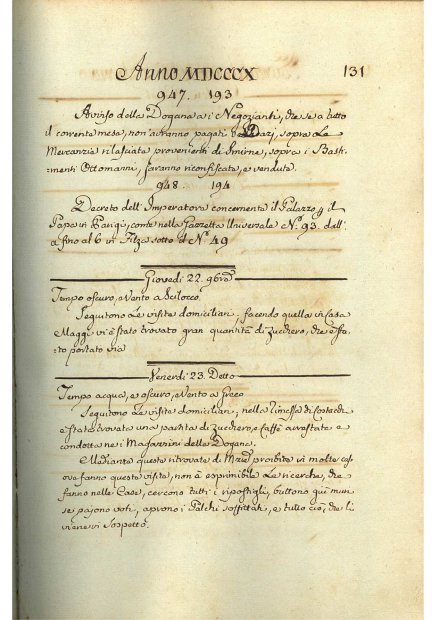 Anno MDCCCX 131
947. 193
Avviso della Dogana a i Negozianti, che se a tutto
il corrente mese, non avranno pagati i Dazj, sopra le
Mercanzie rilasciate provenienti da Smirne, sopra i Basti-
menti Ottomanni, saranno riconfiscate, e vendute.
948. 194
Decreto dell'Imperatore concernente il Palazzo p il
Papa in Parigi, come nella Gazzetta Universale N.º 93. dall'
a fino al 6 in Filza sotto d N.º 49
Giovedì 22. 9bre
Tempo oscuro, e Vento a Scilocco.
Seguitono le visite domiciliari, facendo quella in Casa
Maggi vi è stato trovato gran quantità di Zucchero, che è sta-
to portato via
Venerdì 23. Detto
Tempo acqua, e oscuro, e Vento a Greco
Seguitono le visite domiciliari, nella
è stato trovato una partita di Zucchero, e Caffè arrestate e
condotte ne i Magazzini della Dogana.
Mediante queste ritrovate di Mrzie proibite in molte cas-
se fanno queste visite, non è esprimibile le ricerche, che
fanno nelle Case, cercono tutti i ripostigli, buttono giù muri
se pajono voti, aprono i Palchi soffittati, e tutto ciò, che li
viene in sospetto.